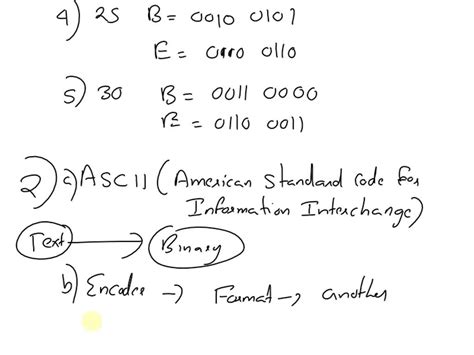 4) 25 B = 0010 0101
E = 0110 0110
5) 30 B = 0011 0000
E = 0110 0011
2) a) ASCII (American Standard code for
Information Interchange)
Text → Binary
b) Encoder → Format → another